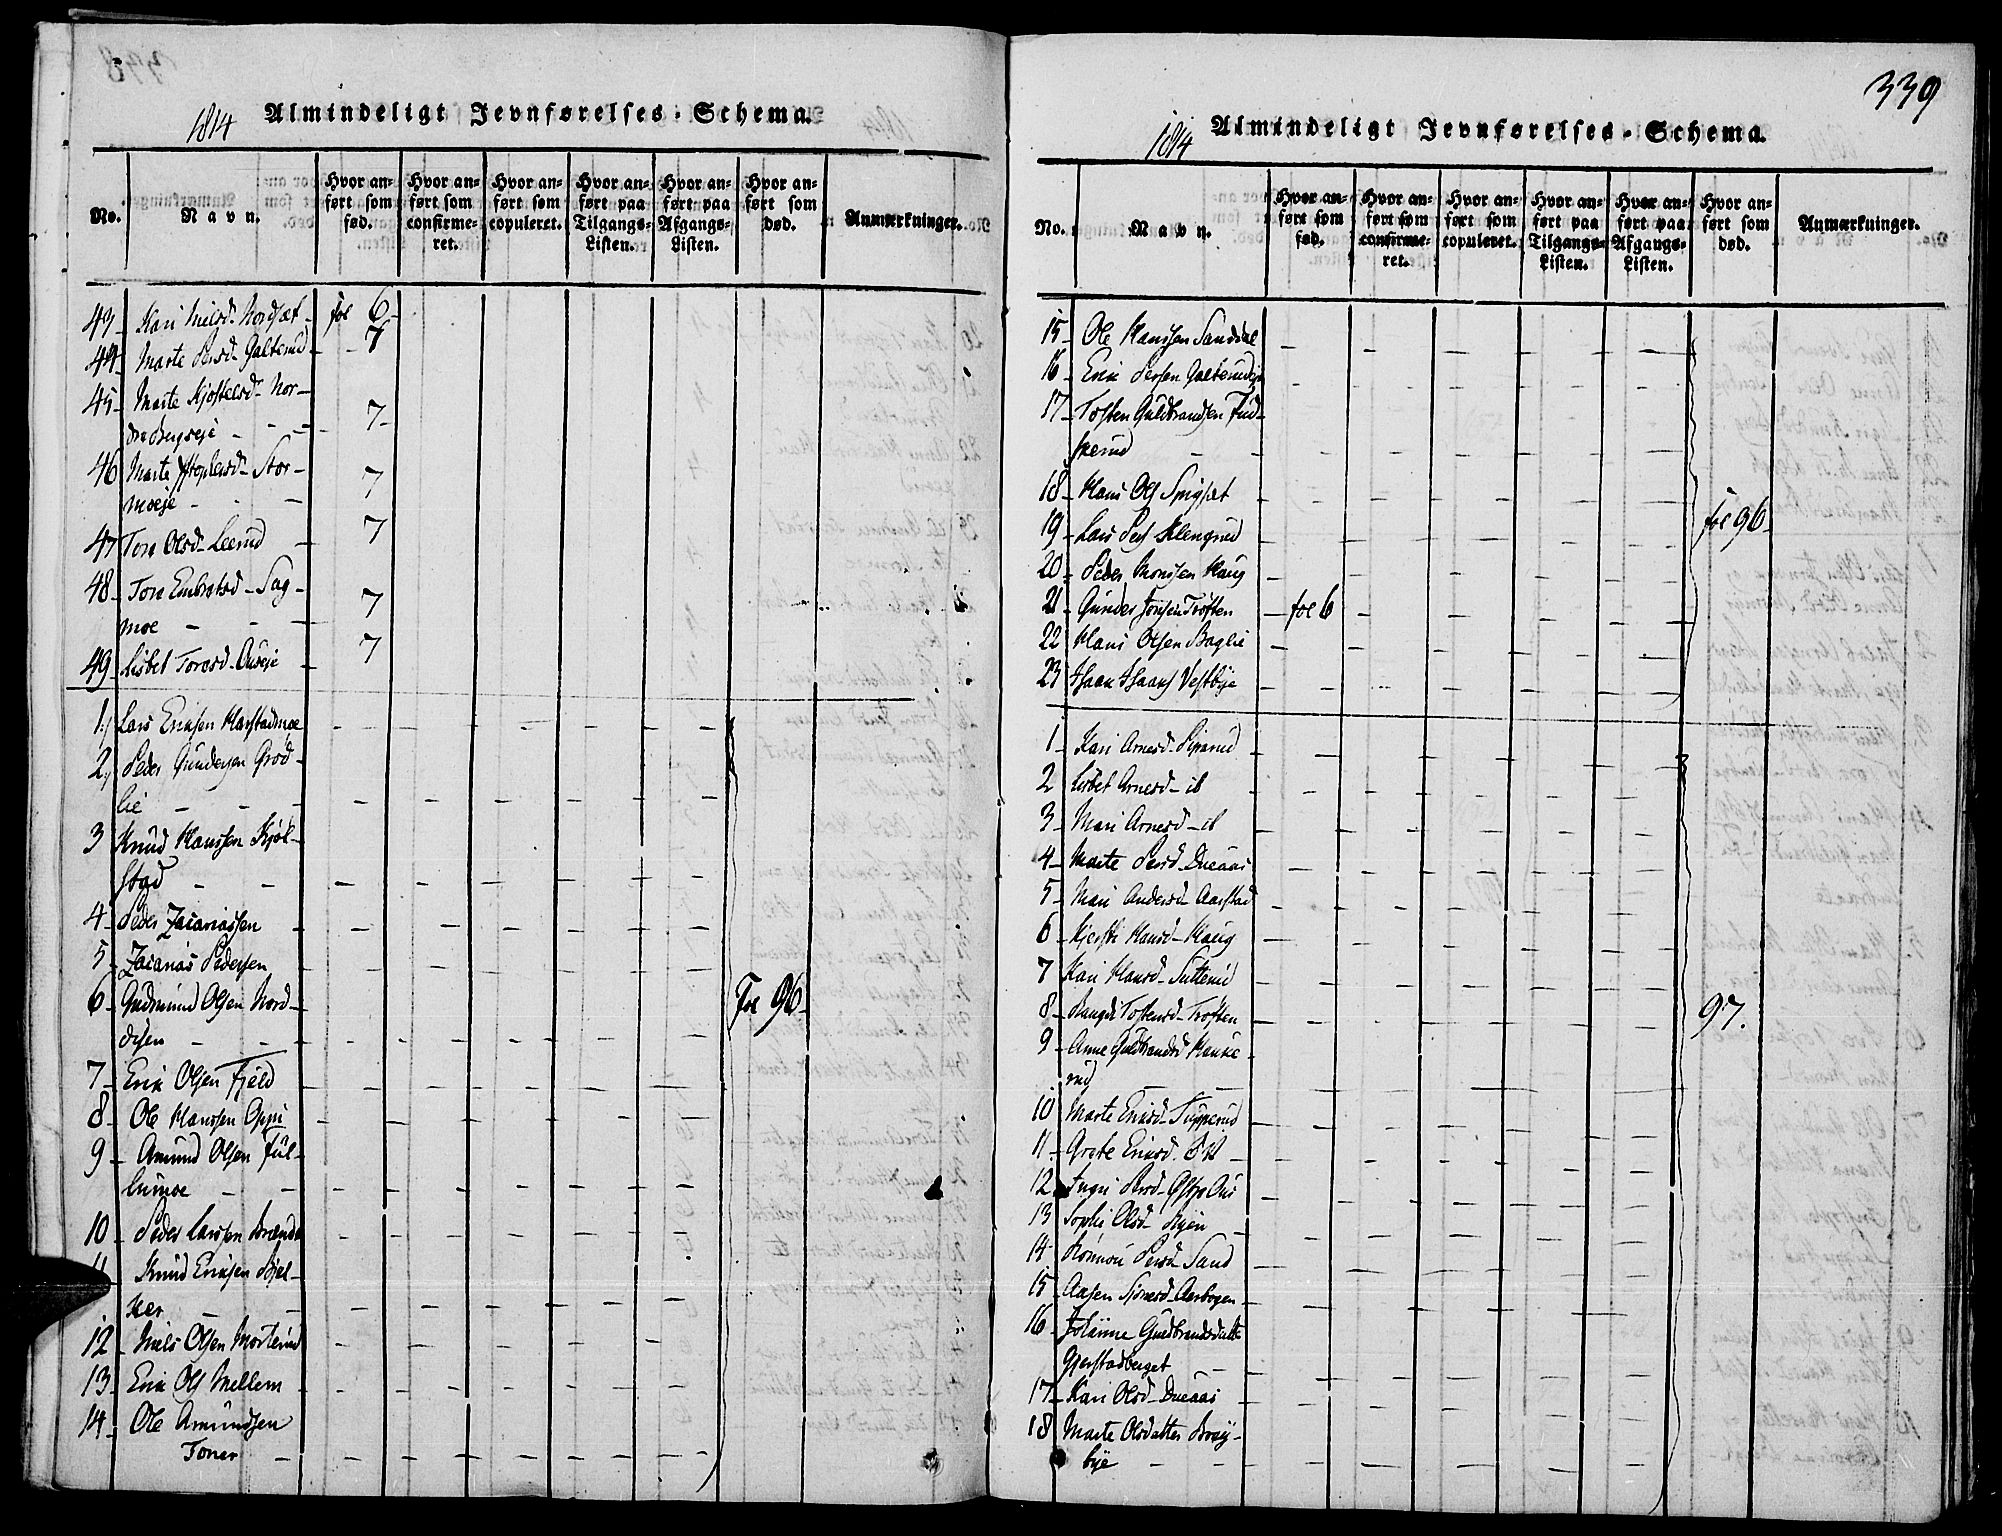 1814 Almindeligt Jevnførelses-Schema.
No. Navn. Hvor anført som fød. Hvor anført som confirmeret. Hvor anført som copuleret. Hvor anført paa Tilgangs-Listen. Hvor anført paa Afgangs-Listen. Hvor anført som død. Anmærkninger.
43 Kari Nielsd. Nordsæt fol 6
44 Marte Persd. Galterud 7
45 Marte Kjostelsd. Nor-
dre Bergseje 7
46 Marte Stor-
moeje 7
47 Tore Olsd. Leerud 7
48 Tore Embretsd. Sag-
moe 7
49 Lisbet Toresd. Ouseje 7
1 Lars Eriksen Harstadmoe
2 Peder Gundersen Grød-
lie
3 Knud Hanssen Kjøl-
stad
4 Peder Zacariassen
5 Zacarias Pedersen
6 Gudmund Olsen Nord-
Fol 96
7 Erik Olsen Fjeld
8 Ole Hanssen Oppi
9 Amund Olsen Ful-
lumoe
10 Peder Larssen Brænde
11 Knud Eriksen Bjel-
ker
12 Niels Olsen Morterud
13 Erik Ols Mellem
14 Ole Amundsen
Toner
339
1814 Almindeligt Jevnførelses-Schema.
No. Navn. Hvor anført som fød. Hvor anført som confirmeret. Hvor anført som copuleret. Hvor anført paa Tilgangs-Listen. Hvor anført paa Afgangs-Listen. Hvor anført som død. Anmærkninger.
15 Ole Hanssen Sanddal
16 Erik Persen Galterudeje
17 Tosten Guldbrandsen Find-
sterud
18 Hans Ols Spigset
19 Lars Pers Klengrud fol 96
20 Peder Monssen Haug
21 Gunder Jonsen Trøften fol 6
22 Hans Olsen Baglie
23 Isaac Isaacs Vestbye
1 Kari Arnesd. Siperud
2 Lisbet Arnesd. ib
3 Mari Arnesd. ib
4 Marte Persd. Dueaas
5 Mari Andersd. Aarstad
6 Kjersti Hansd. Haug
7 Kari Hansd. Sutterud
8 Rangdi Tostensd. Trøften 97.
9 Anne Guldbrandsd Hauke-
rud
10 Marte Eriksd. Tupperud
11 Grete Eriksd.
12 Ingri Persd. Østre Ous
13 Sophi Olsd. Ryen
14 Rønnou Persd. Sand
15 Aasen Simesd. Aarbogen
16 Johanne Guldbrandsdatter
Gjerstadberget
17 Kari Olsd. Dueaas
18 Marte Olsdatter Braa-
bye